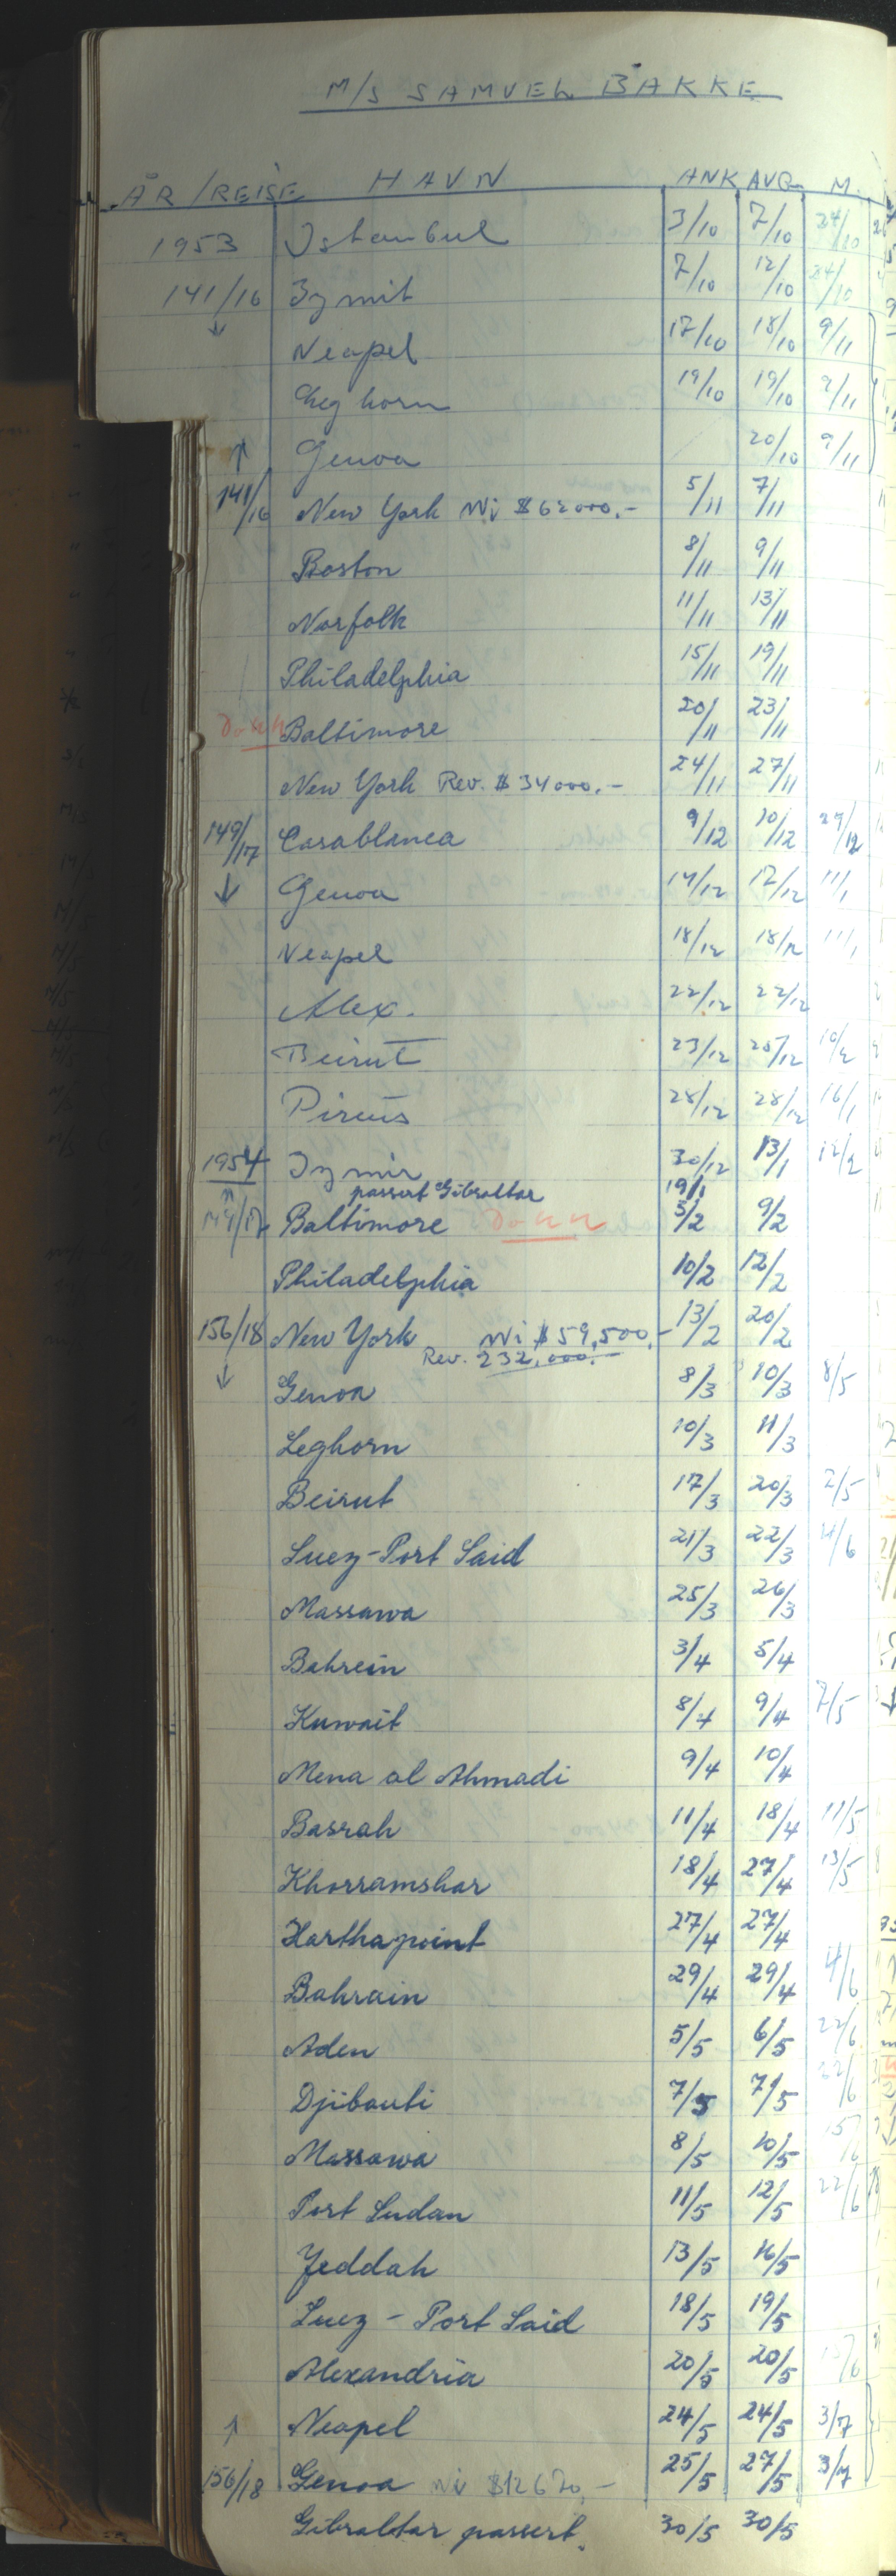 M/S SAMVEL BAKKE
ÅR/REISE HAVN ANK AVG M.
1953 Istanbul 3/10 7/10 24/10
141/16 Izmit 7/10 12/10 24/10
↓ Neapel 17/10 18/10 9/11
Leghorn 19/10 19/10 9/11
↑ Genoa 20/10 9/11
141/16 New York Ni $62000.- 5/11 7/11
Boston 8/11 9/11
Norfolk 11/11 13/11
Philadelphia 15/11 19/11
Baltimore 20/11 23/11
New York Rev. $34000.- 24/11 27/11
149/17 Casablanca 9/12 10/12 29/12
↓ Genoa 14/12 17/12 11/1
Neapel 18/12 18/12 11/1
Alex. 22/12 22/12
Beirut 23/12 25/12 10/2
Pireus 28/12 28/12 16/1
1954 Izmir 30/12 13/1 12/2
passert Gibraltar 19/1
↑ 149/17 Baltimore 5/2 9/2
Philadelphia 10/2 12/2
156/18 New York Ni $59,500.- 13/2 20/2
Rev. 232,000.-
↓ Genoa 8/3 10/3 8/5
Leghorn 10/3 11/3
Beirut 17/3 20/3 2/5
Suez-Port Said 21/3 22/3
Massawa 25/3 26/3
Bahrein 3/4 5/4
Kuwait 8/4 9/4 7/5
Mena al Ahmadi 9/4 10/4
Basrah 11/4 18/4 11/5
Khorramshar 18/4 27/4 13/5
Harthapoint 27/4 27/4
Bahrain 29/4 29/4 4/6
Aden 5/5 6/5 22/6
Djibouti 7/5 7/5 22/6
Massawa 8/5 10/5
Port Sudan 11/5 12/5 22/6
Jeddah 13/5 16/5
Suez - Port Said 18/5 19/5
Alexandria 20/5 20/5
↑ Neapel 24/5 24/5 3/7
156/18 Genoa Ni $12670,- 25/5 27/5 3/7
Gibraltar passert. 30/5 30/5